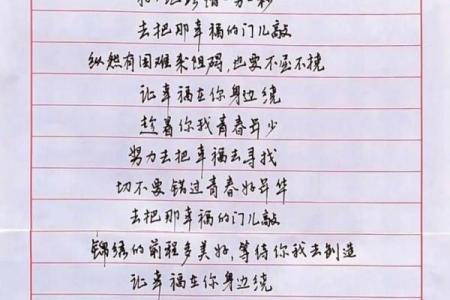 去把那幸福的门儿敲
纵然有困难来阻碍,也要不屈不挠
让幸福在你身边绕
趁着你我青春年少
努力去把幸福去寻找
切不要错过青春好年华
去把那幸福的门儿敲
锦绣的前程多美好,等待你我去创造
让幸福在你身边绕